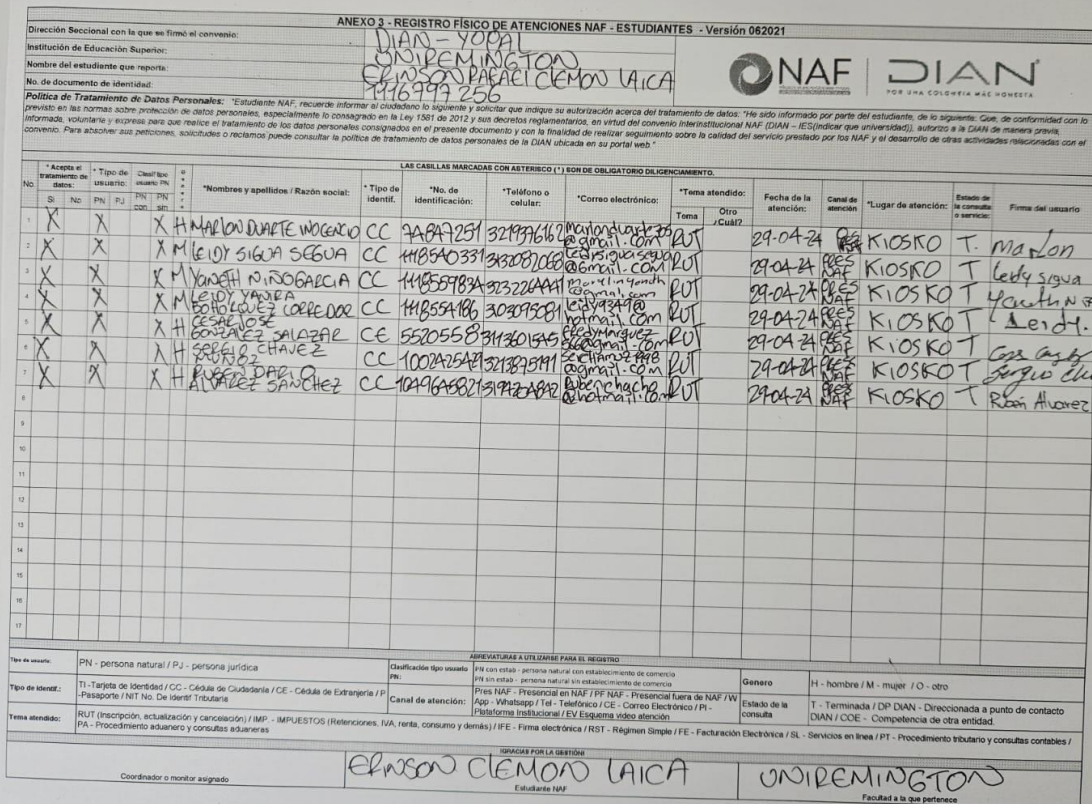 ANEXO 3 - REGISTRO FÍSICO DE ATENCIONES NAF - ESTUDIANTES - Versión 062021
Dirección Seccional con la que se firmó el convenio: DIAN-YOPAL
Institución de Educación Superior: UNIREMINGTON
Nombre del estudiante que reporta: ERINSON RAFAEL CLEMON LAICA
No. de documento de identidad: 1116797256
NAF DIAN
POR UNA COLOMBIA MÁS HONESTA
Política de Tratamiento de Datos Personales: "Estudiante NAF, recuerde informar al ciudadano lo siguiente y solicitar que indique su autorización acerca del tratamiento de datos: "He sido informado por parte del estudiante, de lo siguiente: Que, de conformidad con lo
previsto en las normas sobre protección de datos personales, especialmente lo consagrado en la Ley 1581 de 2012 y sus decretos reglamentarios, en virtud del convenio interinstitucional NAF (DIAN – IES(indicar que universidad)), autorizo a la DIAN de manera previa,
informada, voluntaria y expresa para que realice el tratamiento de los datos personales consignados en el presente documento y con la finalidad de realizar seguimiento sobre la calidad del servicio prestado por los NAF y el desarrollo de otras actividades relacionadas con el
convenio. Para absolver sus peticiones, solicitudes o reclamos puede consultar la política de tratamiento de datos personales de la DIAN ubicada en su portal web."
LAS CASILLAS MARCADAS CON ASTERISCO (*) SON DE OBLIGATORIO DILIGENCIAMIENTO.
No. * Acepta el tratamiento de datos: Si No * Tipo de usuario: PN PJ Clasif tipo usuario PN PN con PN sin *Nombres y apellidos / Razón social: * Tipo de identif. *No. de identificación: *Teléfono o celular: *Correo electrónico: *Tema atendido: Tema Otro ¿Cuál? Fecha de la atención: Canal de atención: *Lugar de atención: Estado de la consulta o servicio: Firma del usuario
1 X X X H MARLON DUARTE INOCENCIO CC 74847251 3219376162 @gmail.com RUT 29-04-24 PRES NAF KIOSKO T. marlon
2 X X X M LEIDY SIGUA SEGUA CC 1118540331 3132082068 leidysiguasegua @Gmail.com RUT 29-04-24 PRES NAF KIOSKO T Leidy sigua
3 X X X M YANETH NIÑO GARCIA CC 1118559834 @gmail.com RUT 29-04-24 PRES NAF KIOSKO T
4 X X X M LEIDY YANIRA BOHORQUEZ CORREDOR CC 1118554186 3103095081 leidy9349@ hotmail.com RUT 29-04-24 PRES NAF KIOSKO T Leidi
5 X X X H CESAR JOSE GONZALEZ SALAZAR CE 5520558 3113601545 @gmail.com RUT 29-04-24 PRES NAF KIOSKO T
6 X X X H SERGIO CHAVEZ CC 1002425429 3213875191 @gmail.com RUT 29-04-24 PRES NAF KIOSKO T Sergio
7 X X X H RUBEN DARIO ALVAREZ SANCHEZ CC 1049645821 Rubenchacho @hotmail.com RUT 29-04-24 PRES NAF KIOSKO T Rubén Alvarez
8
9
10
11
12
13
14
15
16
17
ABREVIATURAS A UTILIZARSE PARA EL REGISTRO
Tipo de usuario: PN - persona natural / PJ - persona jurídica
Clasificación tipo usuario PN: PN con estab - persona natural con establecimiento de comercio
PN sin estab - persona natural sin establecimiento de comercio
Genero H - hombre / M - mujer / O - otro
Tipo de identif.: TI -Tarjeta de Identidad / CC - Cédula de Ciudadanía / CE - Cédula de Extranjería / P
-Pasaporte / NIT No. De Identif Tributaria
Canal de atención: Pres NAF - Presencial en NAF / PF NAF - Presencial fuera de NAF / W
App - Whatsapp / Tel - Telefónico / CE - Correo Electrónico / PI -
Plataforma Institucional / EV Esquema video atención
Estado de la consulta T - Terminada / DP DIAN - Direccionada a punto de contacto
DIAN / COE - Competencia de otra entidad.
Tema atendido: RUT (Inscripción, actualización y cancelación) / IMP. - IMPUESTOS (Retenciones, IVA, renta, consumo y demás) / IFE - Firma electrónica / RST - Régimen Simple / FE - Facturación Electrónica / SL - Servicios en línea / PT - Procedimiento tributario y consultas contables /
PA - Procedimiento aduanero y consultas aduaneras
!GRACIAS POR LA GESTIÓN!
ERINSON CLEMON LAICA
UNIREMINGTON
Coordinador o monitor asignado
Estudiante NAF
Facultad a la que pertenece